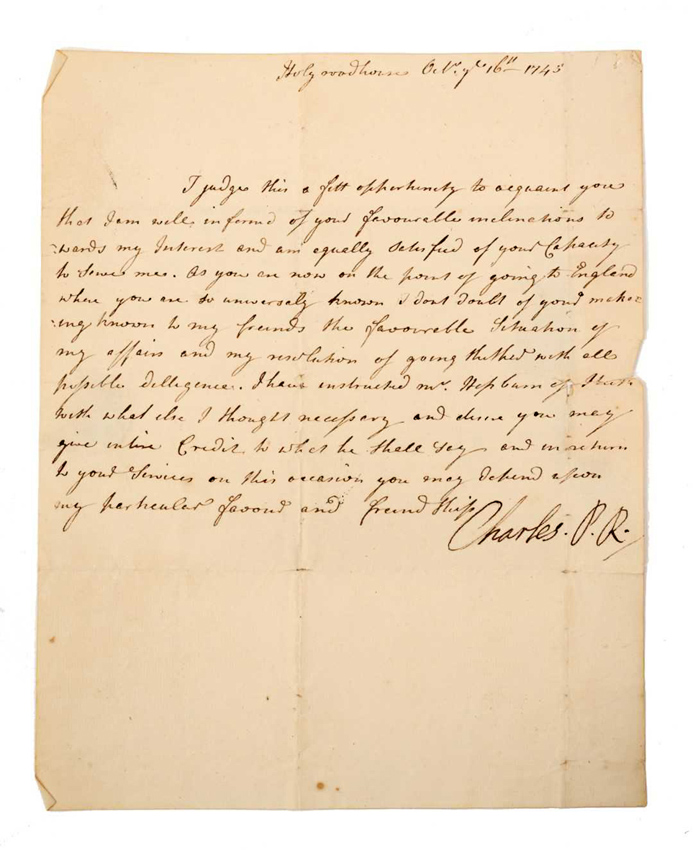 Holyroodhouse Octr. ye 16th 1745
I judge this a fitt opportunity to acquaint you
that I am well informd of your favourable inclinations to
:wards my Interest and am equally satisfied of your Capacity
to serve me. As you are now on the point of going to England
where you are so universaly known I dont doubt of your make=
:ing known to my freinds the favourable Situation of
my affairs and my resolution of going thither with all
possible dilligence. I have instructed mr. Hepburn of
with what else I thought necessary and desire you may
give intire Credit to what he shall say and in return
to your Services on this occasion you may depend upon
my particular favour and freindship
Charles. P. R.